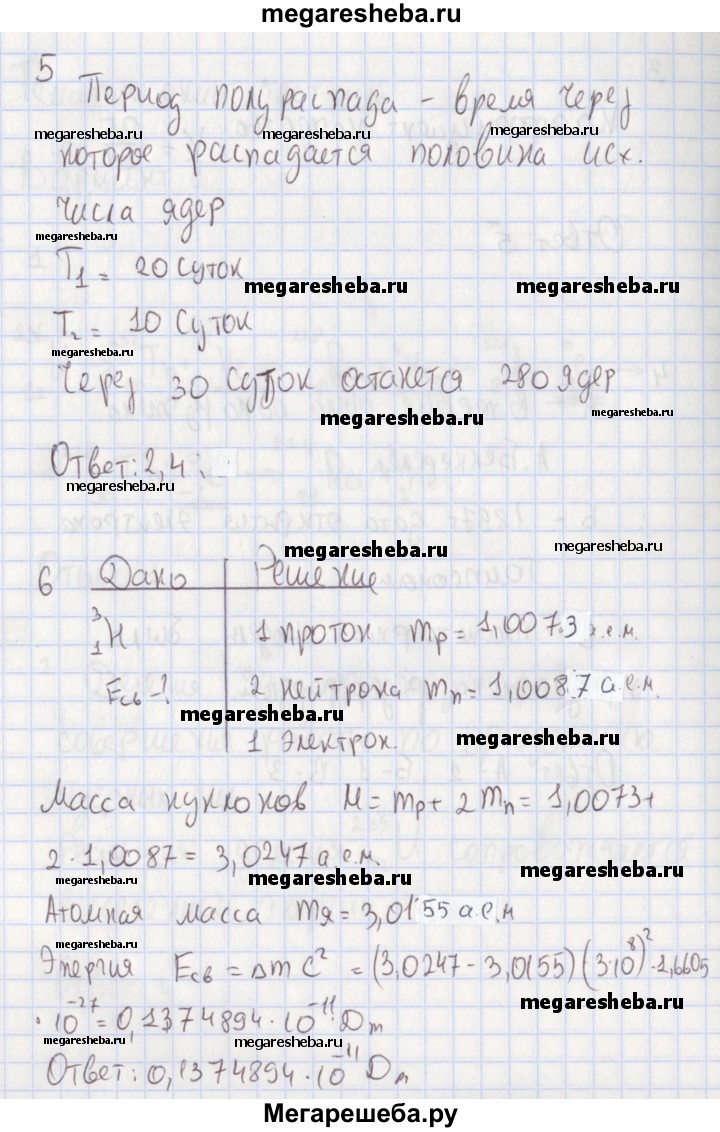 megaresheba.ru
5 Период полураспада - время через
megaresheba.ru megaresheba.ru megaresheba.ru
которое распадается половина исх.
числа ядер
megaresheba.ru
T1 = 20 суток
megaresheba.ru megaresheba.ru
T2 = 10 суток
megaresheba.ru
Через 30 суток останется 280 ядер
megaresheba.ru megaresheba.ru
Ответ: 2,4
megaresheba.ru
megaresheba.ru megaresheba.ru
6 Дано Решение
³₁H 1 протон mp = 1,0073 а.е.м.
Eсв - ? 2 нейтрона mn = 1,0087 а.е.м.
megaresheba.ru
1 электрон. megaresheba.ru
Масса нуклонов M = mp + 2mn = 1,0073 +
2 · 1,0087 = 3,0247 а.е.м.
megaresheba.ru megaresheba.ru megaresheba.ru
Атомная масса mя = 3,0155 а.е.м
megaresheba.ru
Энергия Eсв = Δm C² = (3,0247 - 3,0155)(3·10⁸)² · 1,6605
megaresheba.ru megaresheba.ru
· 10⁻²⁷ = 0,1374894 · 10⁻¹¹ Dm
megaresheba.ru
Ответ: 0,1374894 · 10⁻¹¹ Dm
Мегарешеба.ру